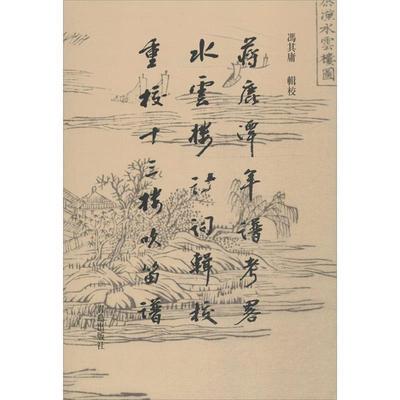 水雲樓圖
馮其庸 輯校
蔣鹿潭年譜考畧
水雲樓詩詞輯校
重校十三樓吹笛譜
青島出版社